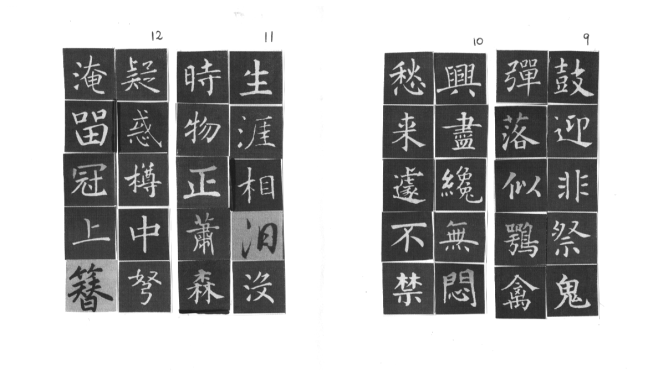 9
鼓迎非祭鬼
彈落似鶚禽
10
興盡纔無悶
愁来遽不禁
11
生涯相汨沒
時物正蕭森
12
疑惑樽中弩
淹畱冠上簪